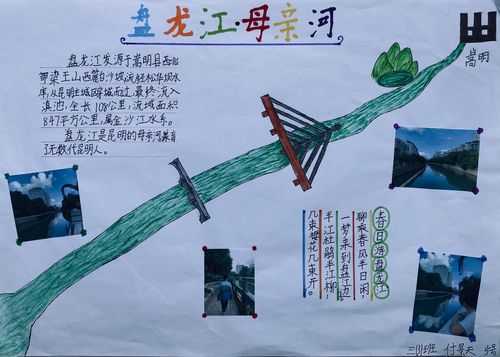 盘龙江·母亲河
嵩明
盘龙江发源于嵩明县西北
梁王山西麓白沙坡,流经松华坝水
库,从昆明主城区穿城而过,最终流入
滇池,全长108公里,流域面积
847平方公里,属金沙江水系。
盘龙江是昆明的母亲河,养育
了无数代昆明人。
春日游盘龙江
聊乘春风半日闲,
一梦来到盘江边。
半江杜鹃半江柳,
几束樱花几束开。
三(1)班 付昊天